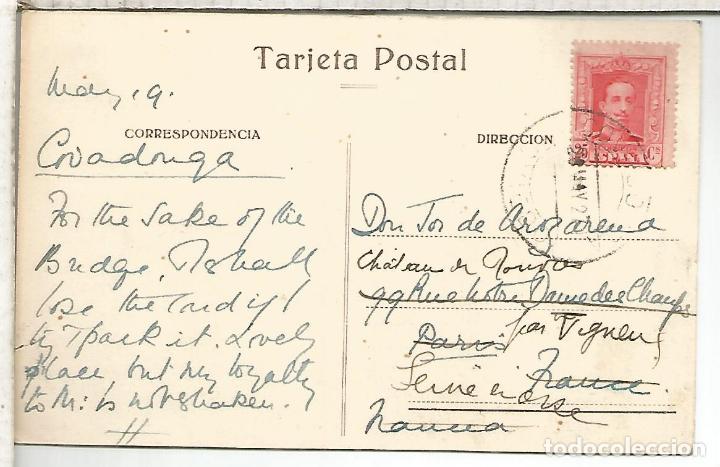 Tarjeta Postal
May 19.
CORRESPONDENCIA
Covadonga
For the sake of the
Bridge, I shall
lose the card if I
try & park it. Lovely
place but my loyalty
to M: is not shaken.
DIRECCION
ESPAÑA
Don Jos de Arozarena
Château de
99 Rue Notre Dame des Champs
Paris par Vigneux
Seine et Oise France
France
todocoleccion